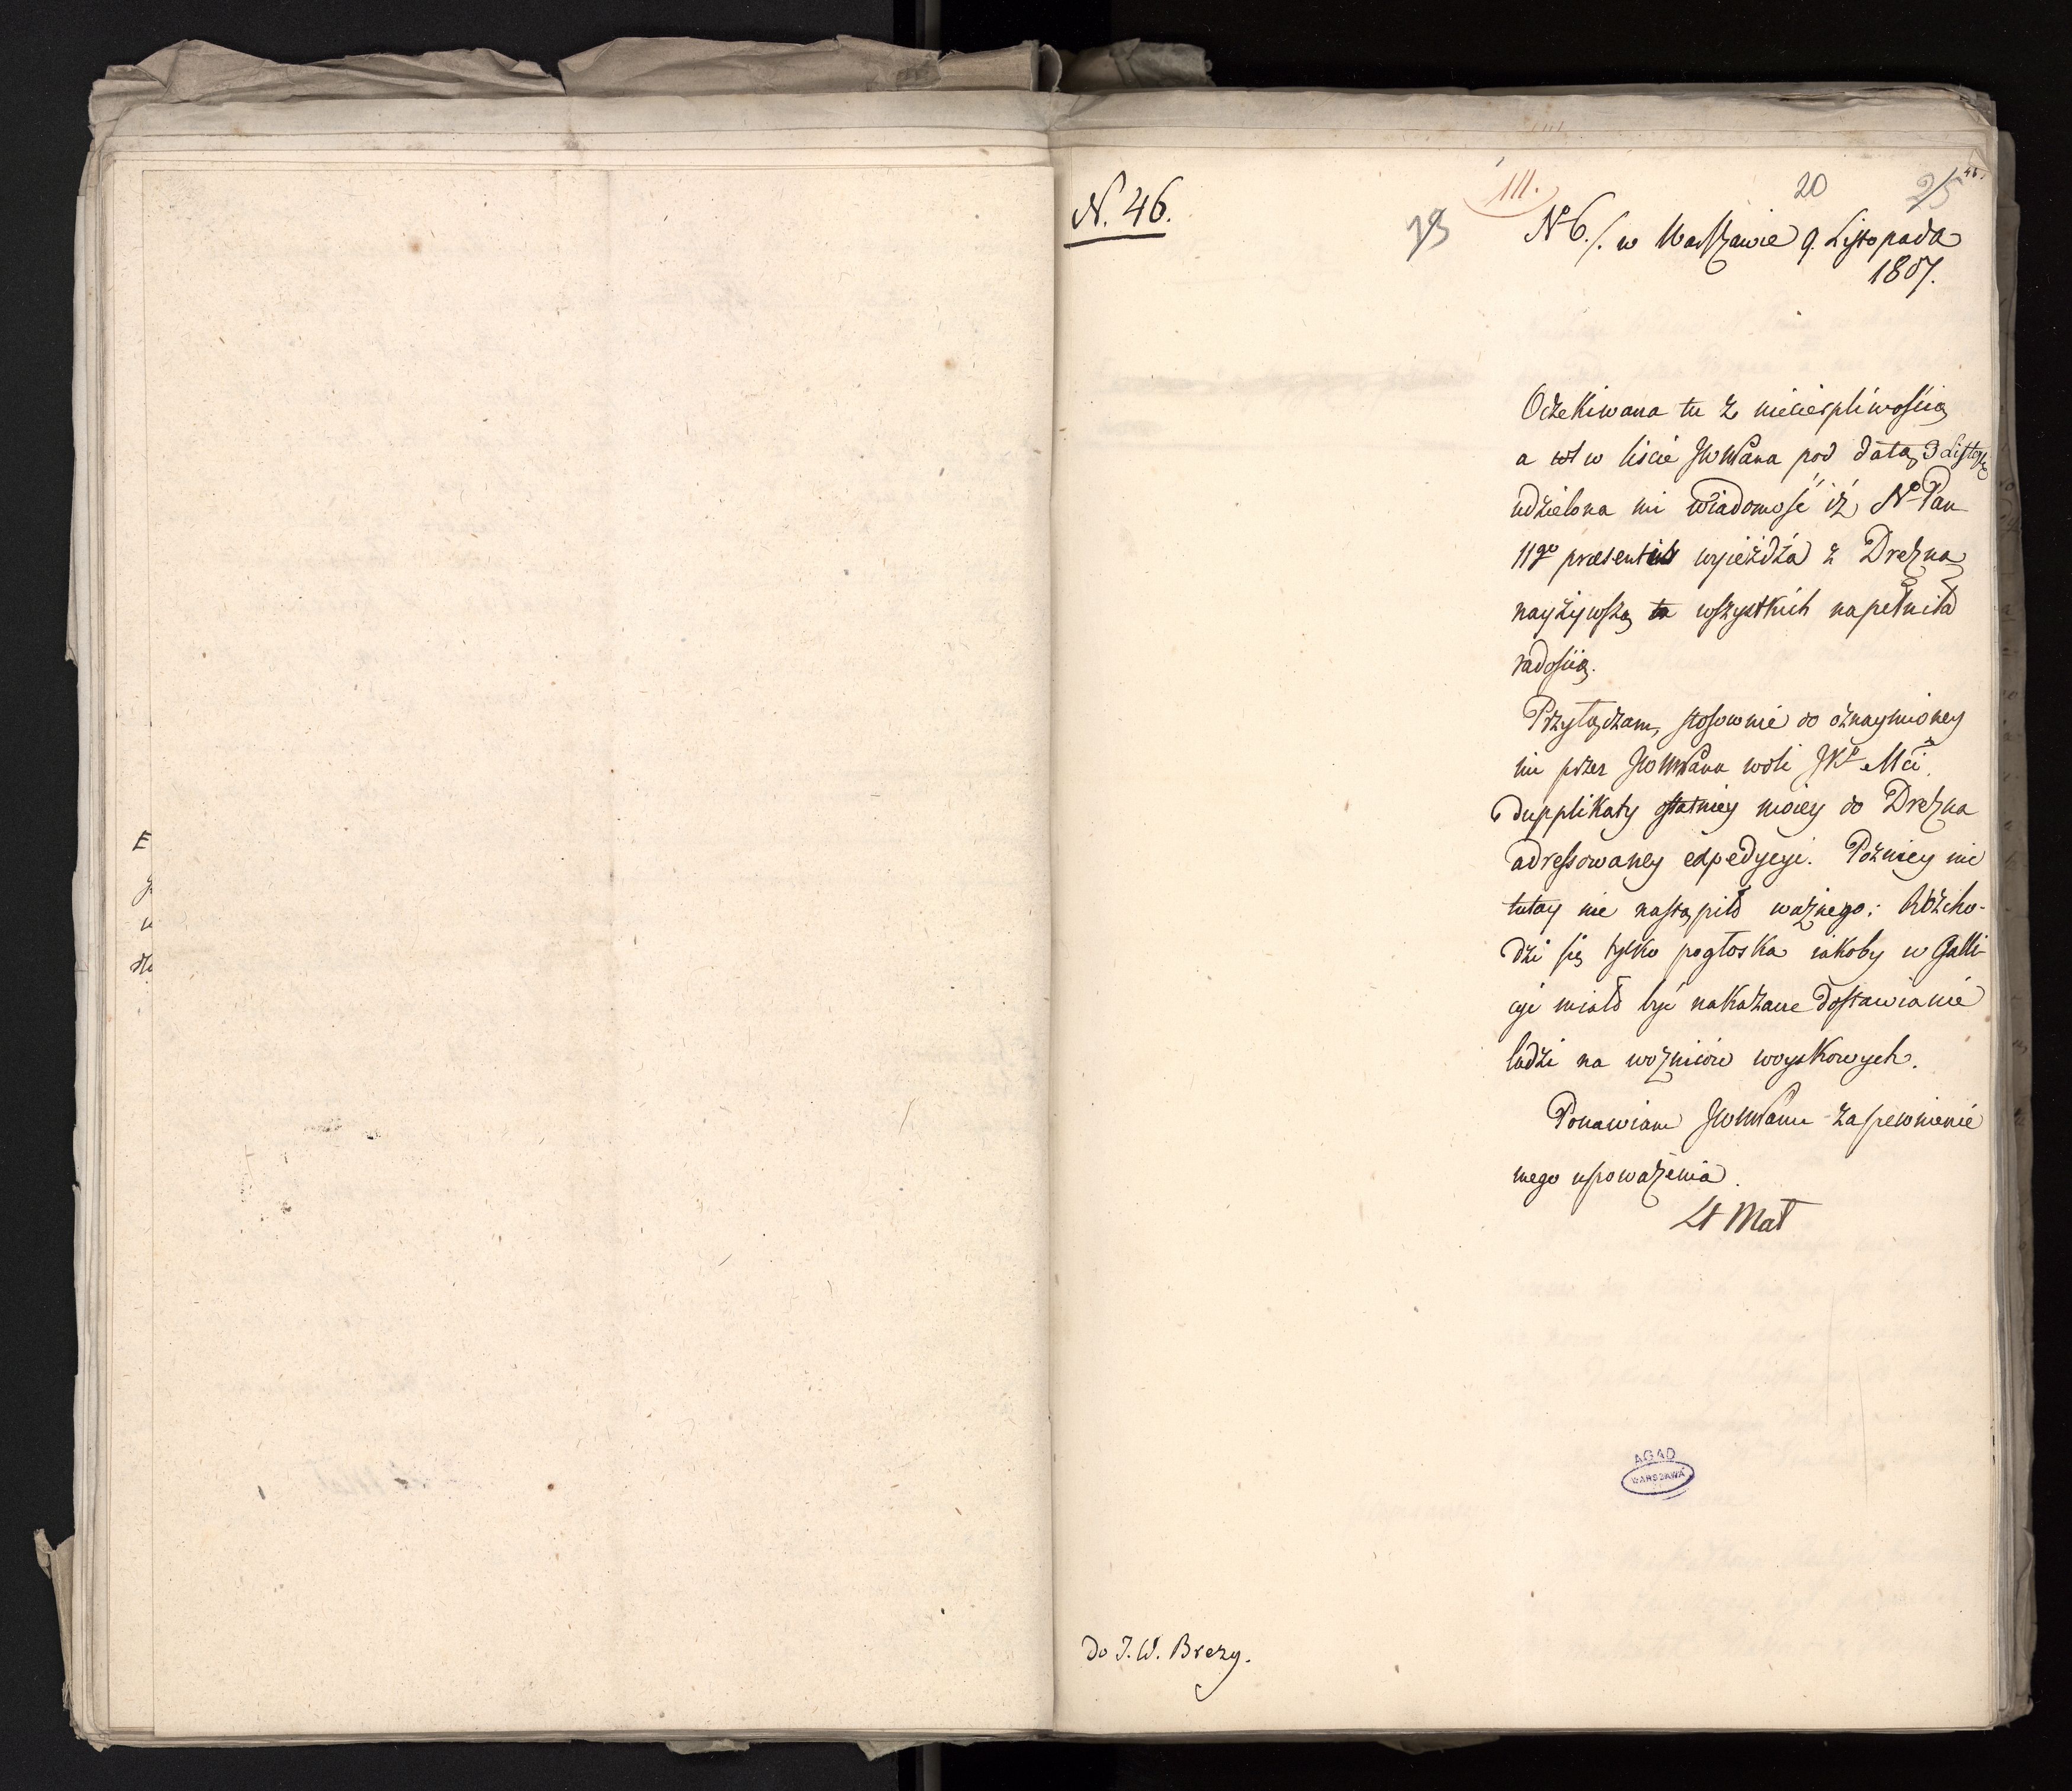 N. 46.
111.
20
25
46.
73
No 6./. w Warszawie 9. Listopada
1807.
Oczekiwana tu z niecierpliwością
a w liście JWWPana pod datą 3 Listop.
udzielona mi wiadomość iż No Pan
11go praesentis wyieżdża z Drezna
nayżywszą wszystkich napełniła
radością.
Przyłączam, stosownie do oznaymioney
mi przez JWWPana woli JKr Mci
dupplikaty ostatniey moiey do Drezna
adressowaney expedycyi. Poźniey nic
tutay nie nastąpiło ważnego: Rozcho-
dzi się tylko pogłoska iakoby w Galli-
cyi miało być nakazane dostawianie
ludzi na woźniców woyskowych.
Ponawiam JWWPanu zapewnienie
mego upoważenia.
St Mał
AGAD
WARSZAWA
Do J. W. Brezy.
E